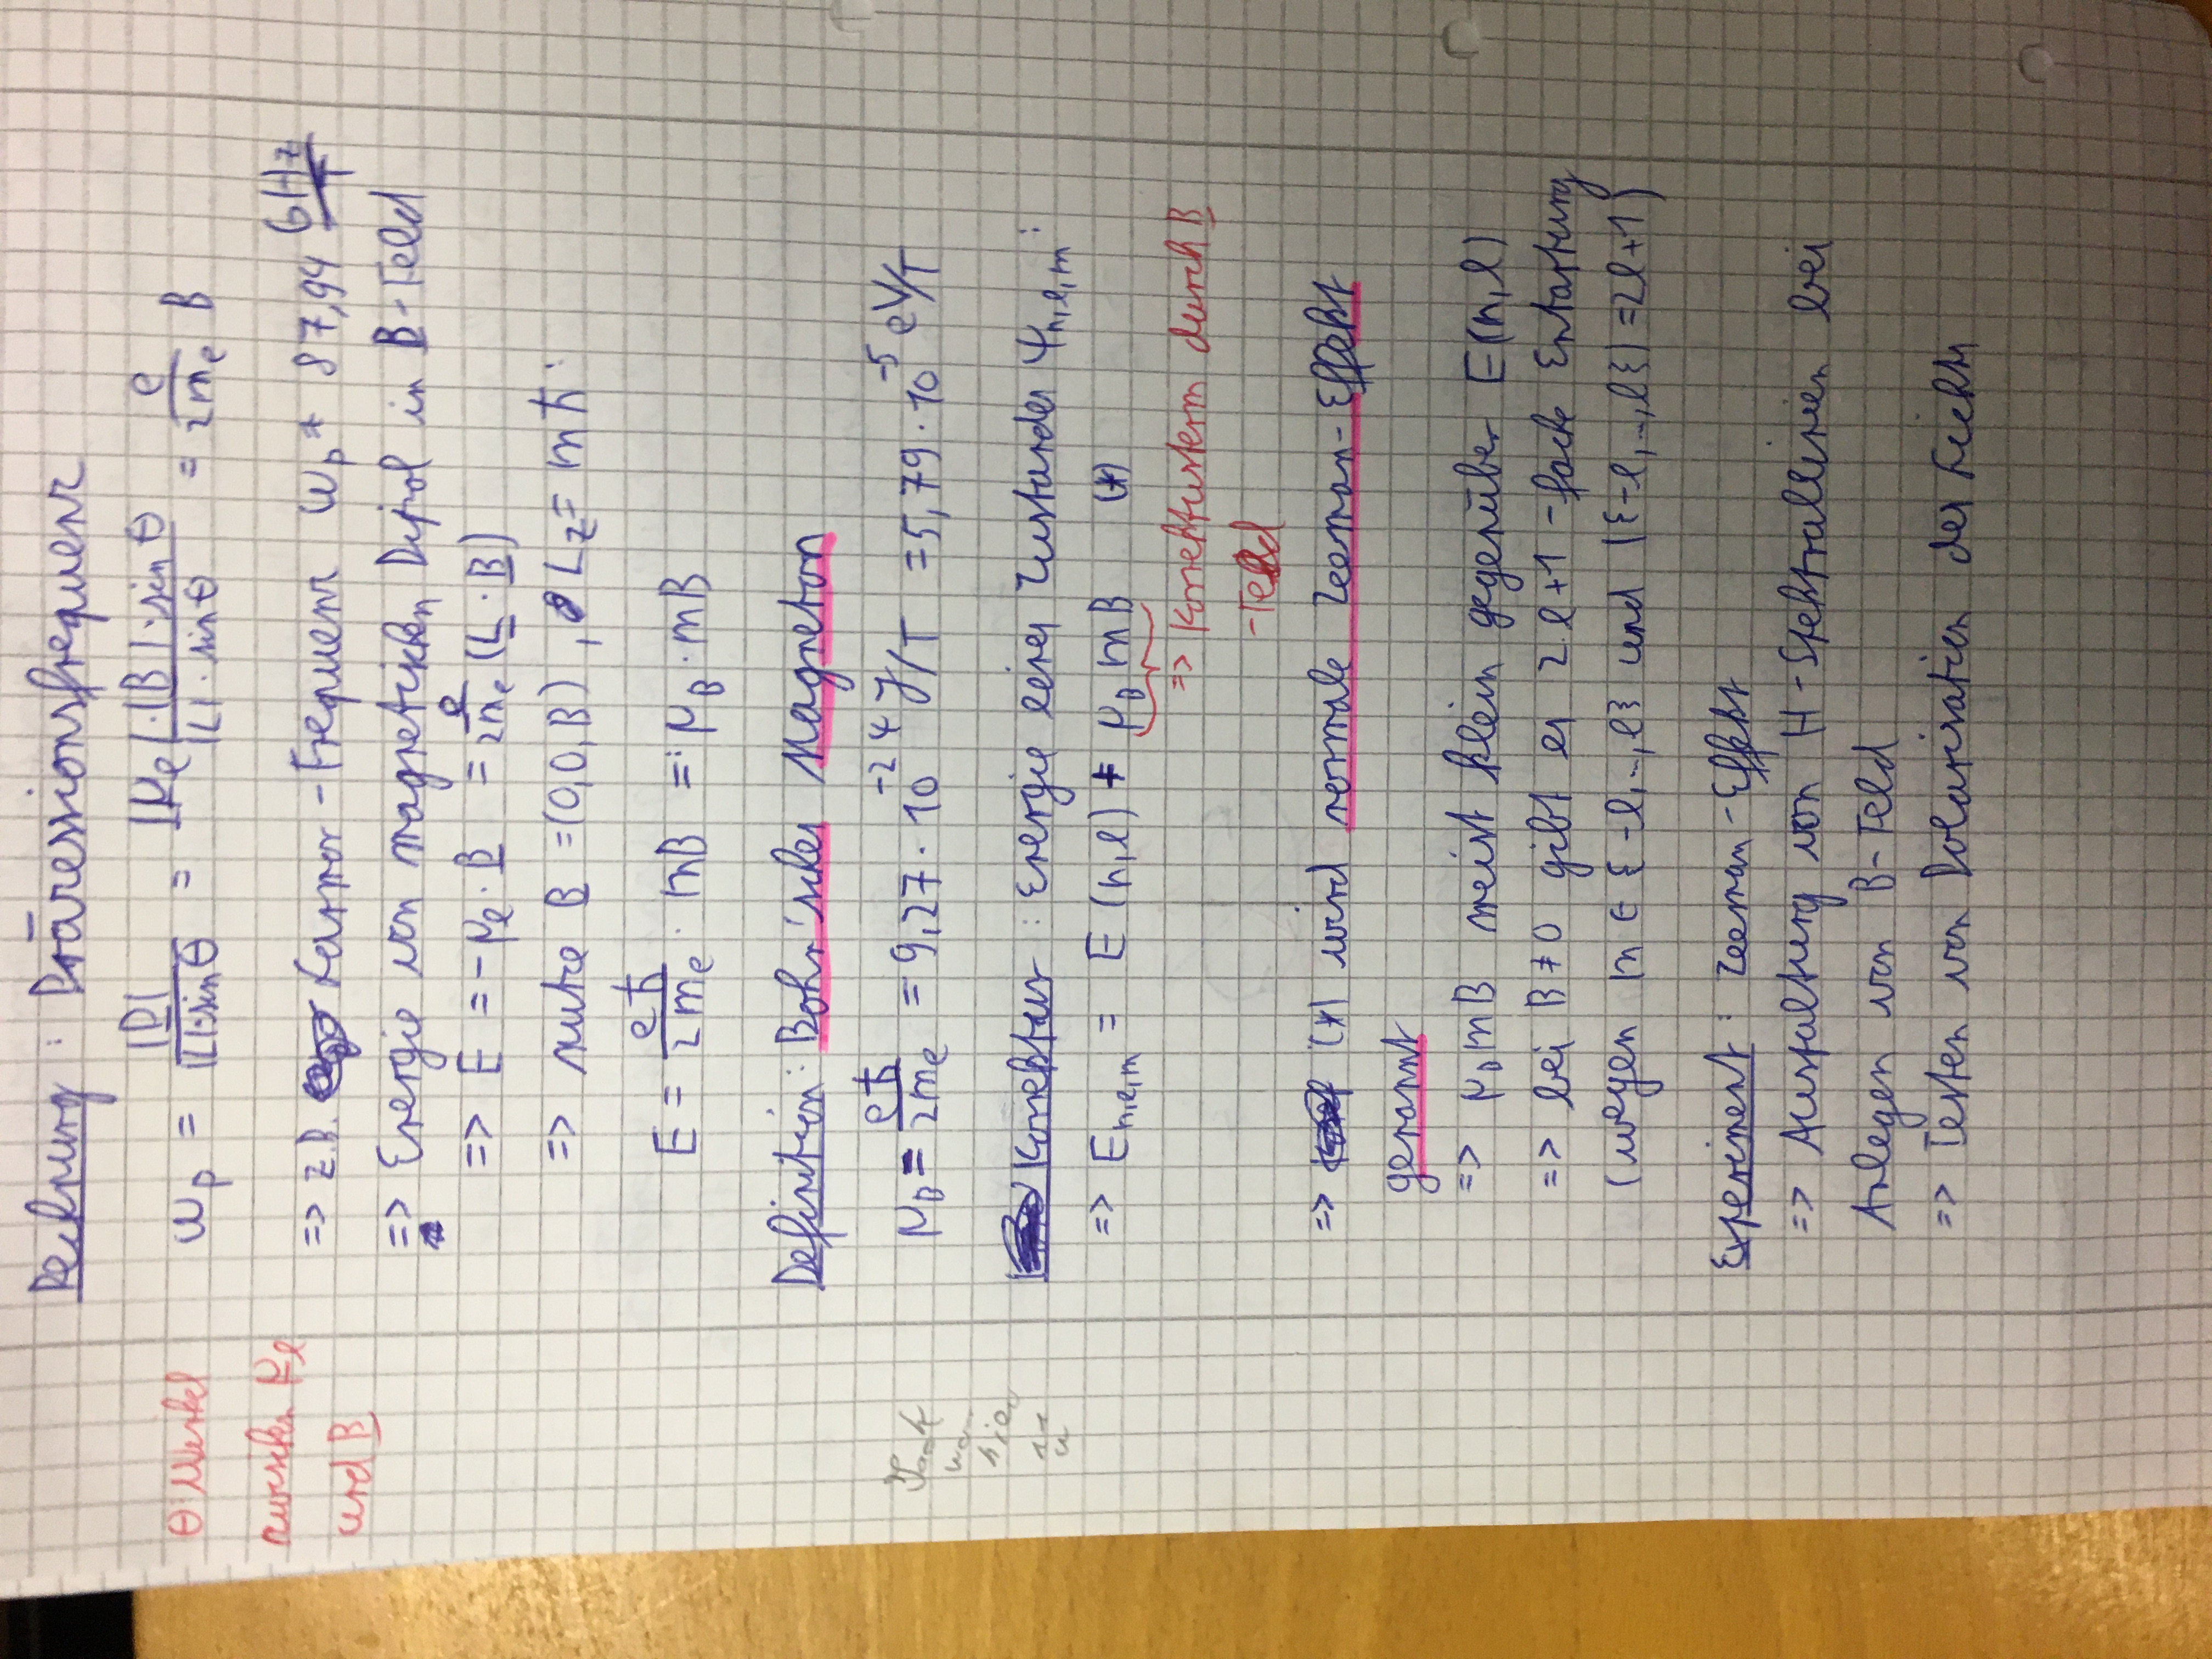 Rechnung : Präzessionsfrequenz
θ Winkel
zwischen μ_l
und B
ω_p = |D| / |L|·sin θ = |μ_e|·|B|·sin θ / |L|·sin θ = e / 2m_e B
=> z.B. Larmor-Frequenz ω_p = 87,94 GHz/T
=> Energie von magnetischen Dipol in B-Feld
=> E = -μ_e · B = e/2m_e (L · B)
=> nutze B = (0,0,B) , L_z = mħ :
E = eħ/2m_e · mB =: μ_B · mB
Definition: Bohr'sches Magneton
μ_B = eħ/2m_e = 9,27 · 10^-24 J/T = 5,79 · 10^-5 eV/T
hier
Korrektur : Energie eines Zustandes ψ_n,l,m :
=> E_n,l,m = E (n,l) + μ_B mB (*)
=> Korrekturterm durch B
-Feld
=> (*) wird normale Zeeman-Effekt
genannt
=> μ_B mB meist klein gegenüber E(n,l)
=> bei B ≠ 0 gibt es 2·l+1 -fache Entartung
(wegen m ∈ {-l,..,l} und |{-l,..,l}| = 2l+1)
Experiment : Zeeman-Effekt
=> Aufspaltung von H-Spektrallinien bei
Anlegen von B-Feld
=> Testen von Polarisation des Lichts